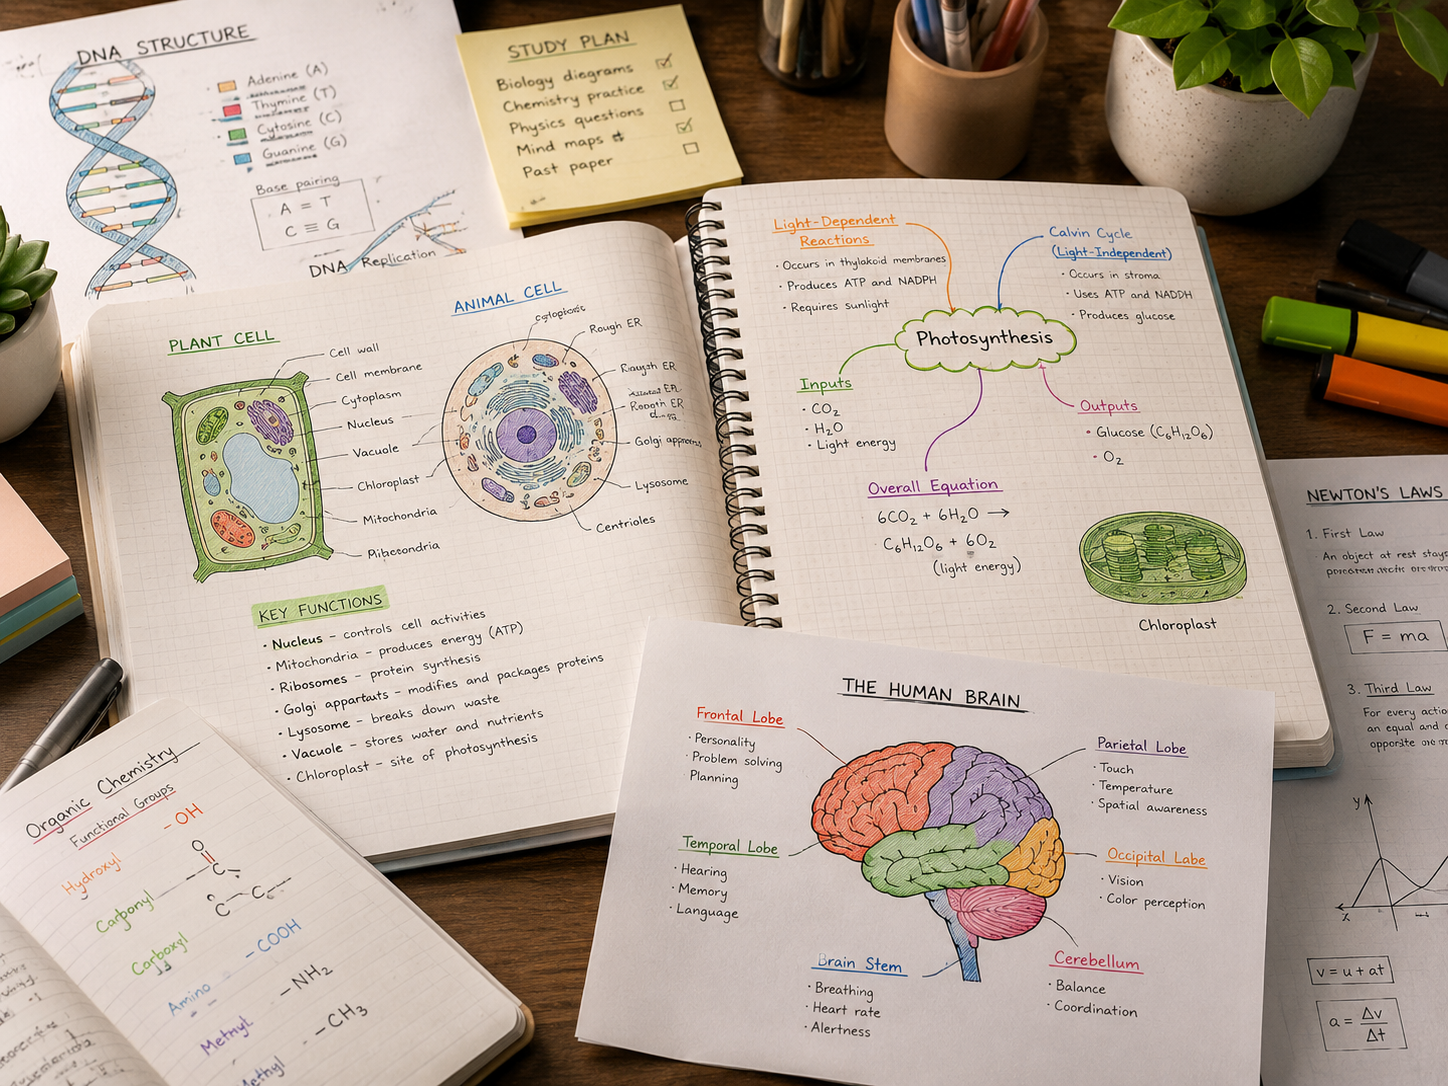 DNA STRUCTURE
Adenine (A)
Thymine (T)
Cytosine (C)
Guanine (G)
Base pairing
A = T
C ≡ G
DNA Replication
STUDY PLAN
Biology diegrams
Chemistry practice
Physics questions
Mind maps
Past paper
PLANT CELL
Cell wall
Cell membrane
Cytoplasm
Nucleus
Vacuole
Chloroplast
Mitochondria
ANIMAL CELL
Rough ER
Rough ER
Golgi
Lysosome
Centrioles
KEY FUNCTIONS
• Nucleus – controls cell activities
• Mitochondria – produces energy (ATP)
• Ribosomes – protein synthesis
• Golgi – modifies and packages proteins
• Lysosome – breaks down waste
• Vacuole – stores water and nutrients
• Chloroplast – site of photosynthesis
Light-Dependent
Reactions
• Occurs in thylakoid membranes
• Produces ATP and NADPH
• Requires sunlight
Calvin Cycle
(Light-Independent)
• Occurs in stroma
• Uses ATP and NADDH
• Produces glucose
Photosynthesis
Inputs
• CO₂
• H₂O
• Light energy
Outputs
• Glucose (C₆H₁₂O₆)
• O₂
Overall Equation
6CO₂ + 6H₂O →
C₆H₁₂O₆ + 6O₂
(light energy)
Chloroplast
NEWTON'S LAWS
1. First Law
An object at rest stays
2. Second Law
F = ma
3. Third Law
For every actio
an equal and
opposite
y
x
v = u + at
a = Δv
Δt
Organic Chemistry
Functional Groups
Hydroxyl
– OH
Carbonyl
O
C
C C
Carboxyl
– COOH
Amino
– NH₂
Methyl
– CH₃
THE HUMAN BRAIN
Frontal Lobe
• Personality
• Problem solving
Planning
Parietal Lobe
• Touch
• Temperature
• Spatial awareness
Temporal Lobe
• Hearing
• Memory
• Language
Occipital Labe
• Vision
• Color perception
Brain Stem
• Breathing
• Heart rate
• Alertness
Cerebellum
• Balance
• Coordination